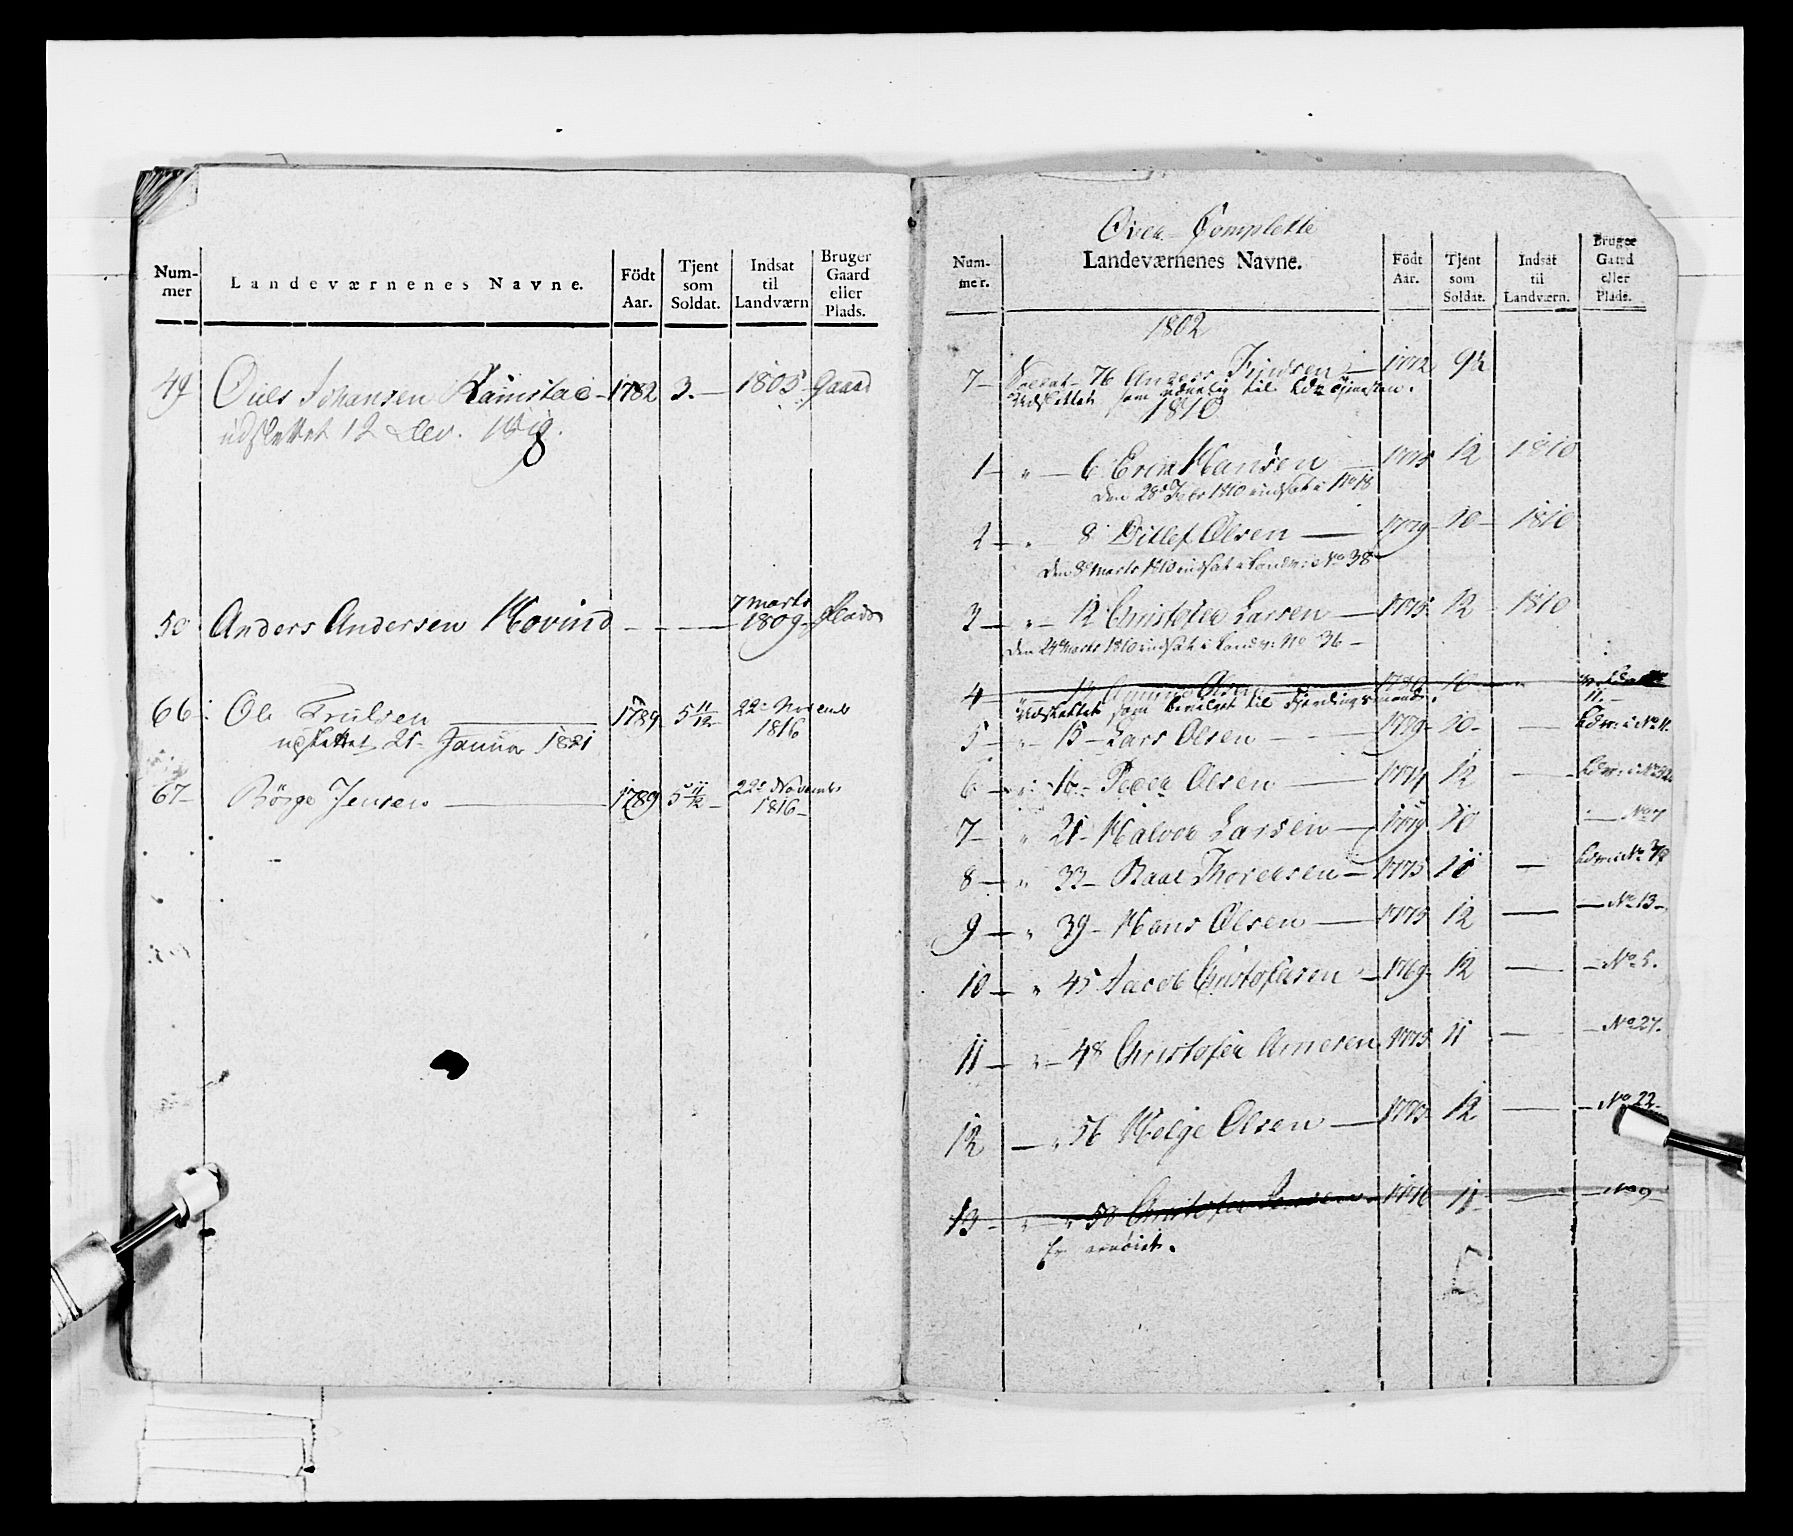 Num-mer
Landeværnenes Navne.
Födt Aar.
Tjent som Soldat.
Indsat til Landværn
Bruger Gaard eller Plads.
49 Johansen Ramstad - 1782 3. - 1805 - Gaard
udslettet 12
50 Anders Andersen Hovind - - - 7 Marts 1809 - Plads
66 Ole Trulsen - 1789 5 11/12 22e Novemb 1816
udslettet 21 Januar 1821
67 - Börge Jensen - 1789 5 11/12 22e Novembr 1816 -
Over Complette
Num-mer.
Landeværnenes Navne.
Födt Aar.
Tjent som Soldat.
Indsat til Landværn.
Bruger Gaard eller Plads.
1802
7 - Soldat - 76 Anders - 1772 9½
Udslettet som til Tjenesten.
1810
1 - " - 6 Erik Hansen - 1775 12 1810
Den 28 Febr 1810 indsat i No 18
2 - " - 8 Ditlef Olsen - 1779 - 10 - 1810
Den 8 Marts 1810 indsat i Landv: No 38
3 - " - 12 Christofer Larsen - 1775 12 - 1810
Den 24 Marts 1810 indsat i Landv: No 36 -
4 - 14 Olsen 1780 10 -
Udslettet som til
5 - " - 15 - Lars Olsen - 1779 - 10 - Ldv: i No 11.
6 - " - 16 - Peder Olsen - 1774 12 - Ldv: i No 32
7 - " 21 - Halvor Larsen - 1779 10 - No 7
8 - " 33 - Paal Thoresen - 1775 11 - Ldv: i No
9 - " 39 - Hans Olsen - 1775 12 - - No 13 -
10 - " 45 Jacob Christofersen - 1769 - 12 - - No 5.
11 - " - 48 Christofer Arnesen 1775 11 - - No 27.
12 - " 56 Helge Olsen - 1775 12 - - No 22 -
13 - " - " 58 Christofer - 1776 11 - - No 9 -